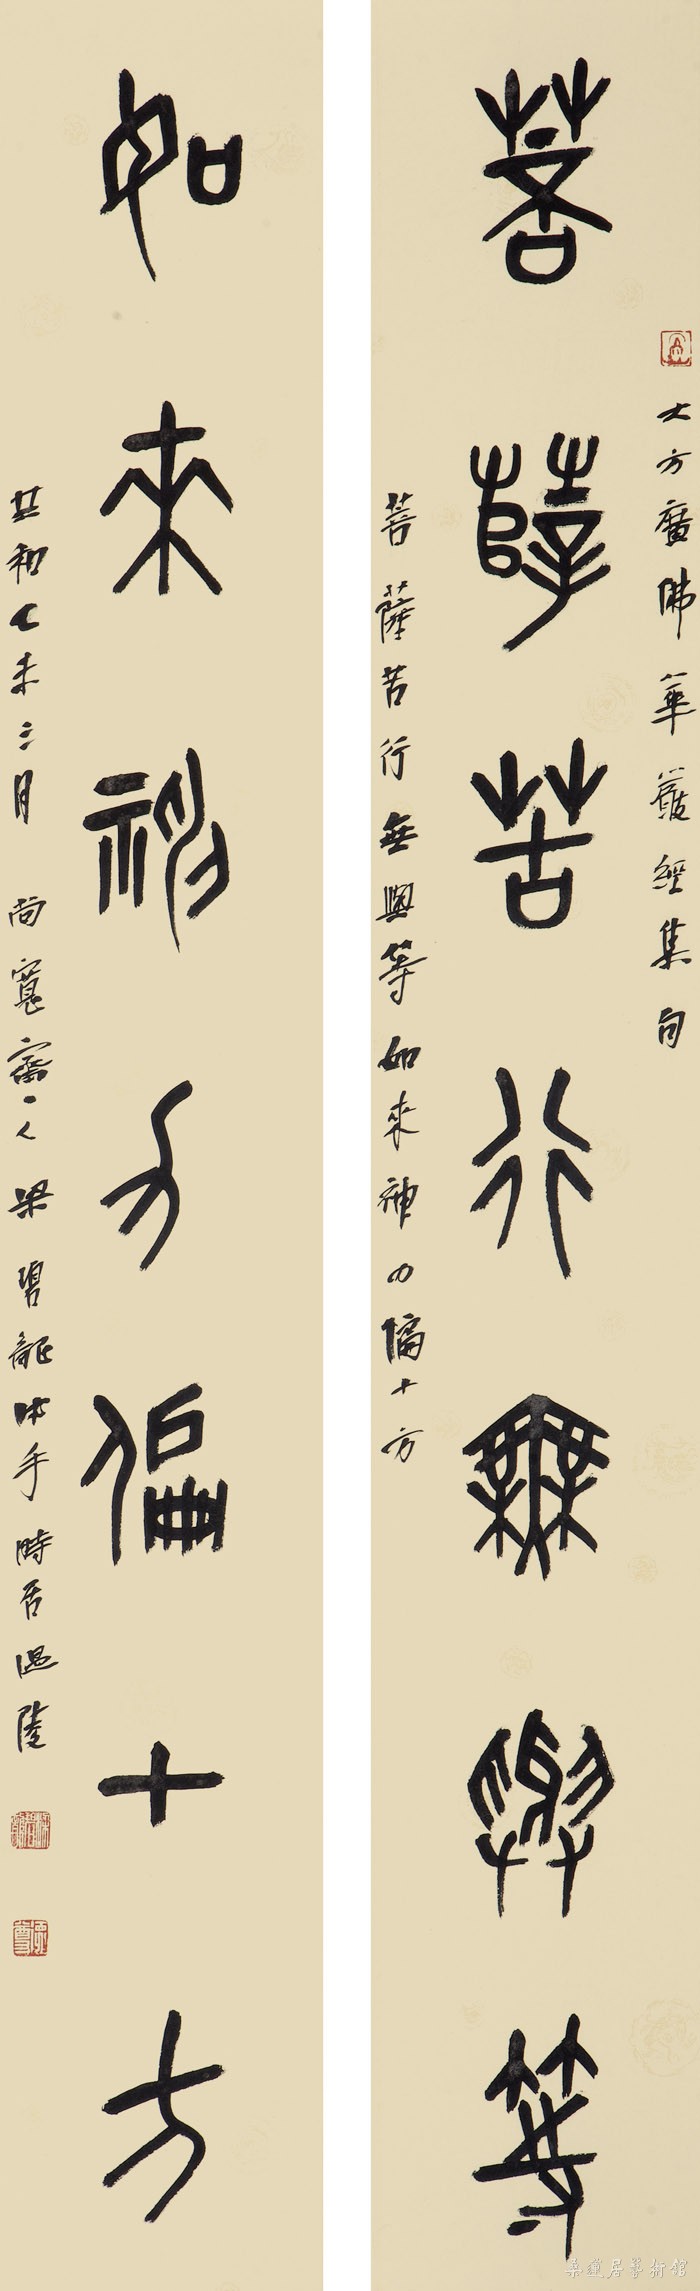 大方廣佛華嚴經集句
菩薩苦行無與等
菩薩苦行無與等如來神力徧十方
如來神力徧十方
共和乙未三月尚寬齋主人梁碧龍左手時居溫陵
桑蓮居藝術館